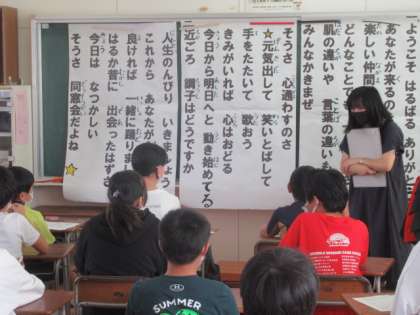 ようこそ　はるばる
あなたが来るの
楽しい仲間
どんなことで
肌の違いや　言葉の違い
みんなかきまぜ
そうさ　心通わすのさ
☆元気出して　笑いとばして
手をたたいて　歌おう
きみがいれば　心はおどる
今日から明日へと　動き始めてる
二近ごろ　調子はどうですか
人生のんびり　いきましょう
これから　あなたが
良ければ　一緒に踊りま
はるか昔に　出会ったはずさ
今日は　なつかしい
そうさ　同窓会だよね
☆
SUMMER